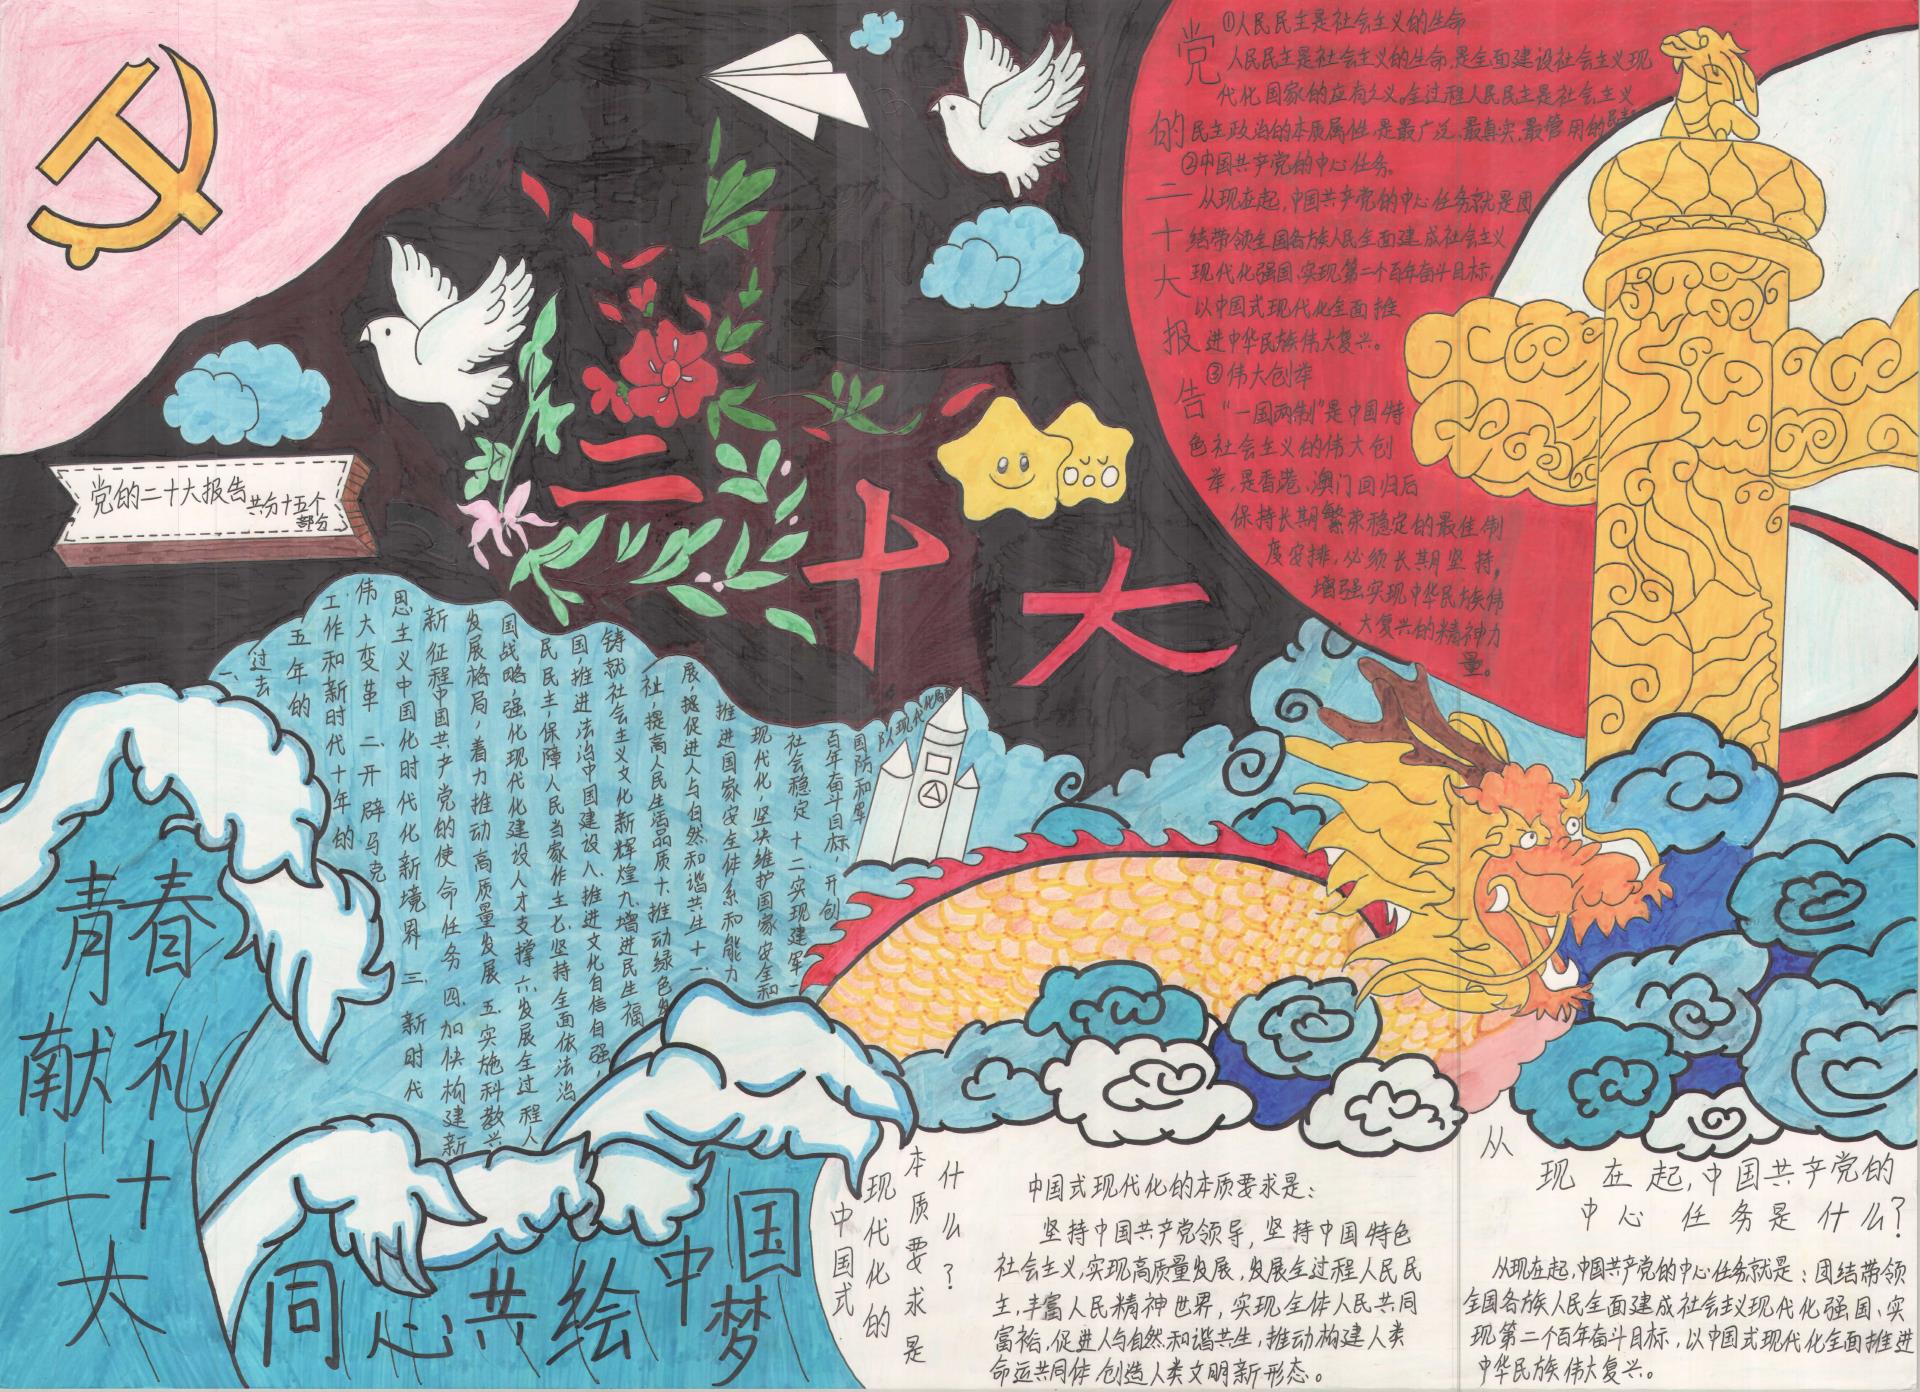 二
十
大
党的二十大报告
共分十五个
部分
党的二十大报告
①人民民主是社会主义的生命
人民民主是社会主义的生命,是全面建设社会主义现
代化国家的应有之义。全过程人民民主是社会主义
民主政治的本质属性,是最广泛、最真实、最管用的民主
②中国共产党的中心任务。
从现在起,中国共产党的中心任务就是团
结带领全国各族人民全面建成社会主义
现代化强国、实现第二个百年奋斗目标,
以中国式现代化全面推
进中华民族伟大复兴。
③伟大创举
“一国两制”是中国特
色社会主义的伟大创
举,是香港、澳门回归后
保持长期繁荣稳定的最佳制
度安排,必须长期坚持。
增强实现中华民族伟
大复兴的精神力
量。
一、过去
五年的
工作和新时代十年的
伟大变革 二、开辟马克
思主义中国化时代化新境界 三、新时代
新征程中国共产党的使命任务 四、加快构建新
发展格局,着力推动高质量发展 五、实施科教兴
国战略,强化现代化建设人才支撑 六、发展全过程人
民民主,保障人民当家作主 七、坚持全面依法治
国,推进法治中国建设 八、推进文化自信自强,
铸就社会主义文化新辉煌 九、增进民生福
祉,提高人民生活品质 十、推动绿色发
展,促进人与自然和谐共生 十一、
推进国家安全体系和能力
现代化,坚决维护国家安全和
社会稳定 十二、实现建军一
百年奋斗目标,开创
国防和军
队现代化局面
青春
献礼
二十
大
同心共绘中国梦
中国式
现代化的
本质要求是
什么?
中国式现代化的本质要求是:
坚持中国共产党领导,坚持中国特色
社会主义,实现高质量发展,发展全过程人民民
主,丰富人民精神世界,实现全体人民共同
富裕,促进人与自然和谐共生,推动构建人类
命运共同体,创造人类文明新形态。
从
现在起,中国共产党的
中心任务是什么?
从现在起,中国共产党的中心任务就是:团结带领
全国各族人民全面建成社会主义现代化强国、实
现第二个百年奋斗目标,以中国式现代化全面推进
中华民族伟大复兴。